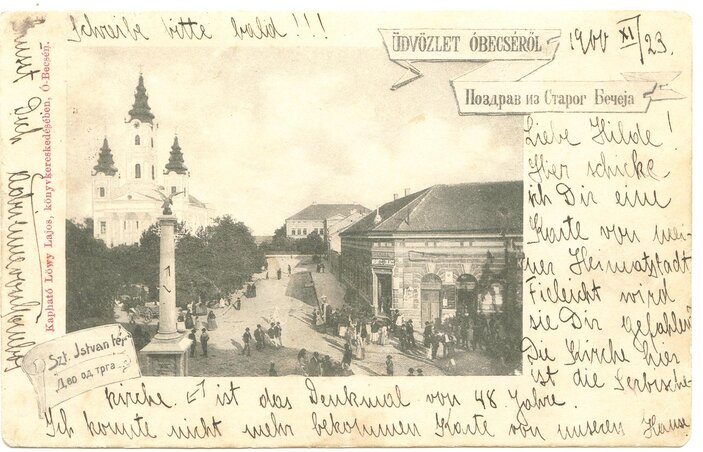 Schreibe bitte bald!!!
ÜDVÖZLET ÓBECSÉRŐL
1900 XI/23.
Поздрав из Старог Бечеја
Kapható Löwy Lajos, könyvkereskedésében, Ó-Becsén.
Liebe Hilde!
Hier schicke
ich Dir eine
Karte von mei-
ner Heimatstadt
Fieleicht wird
sie Dir gefahlen
Die Kirche hier
ist die Serbische
kirche. ist das Denkmal von 48 Jahre.
Ich konnte nicht mehr bekommen Karte von unseren
Szt. Istvan tér
Део од трга